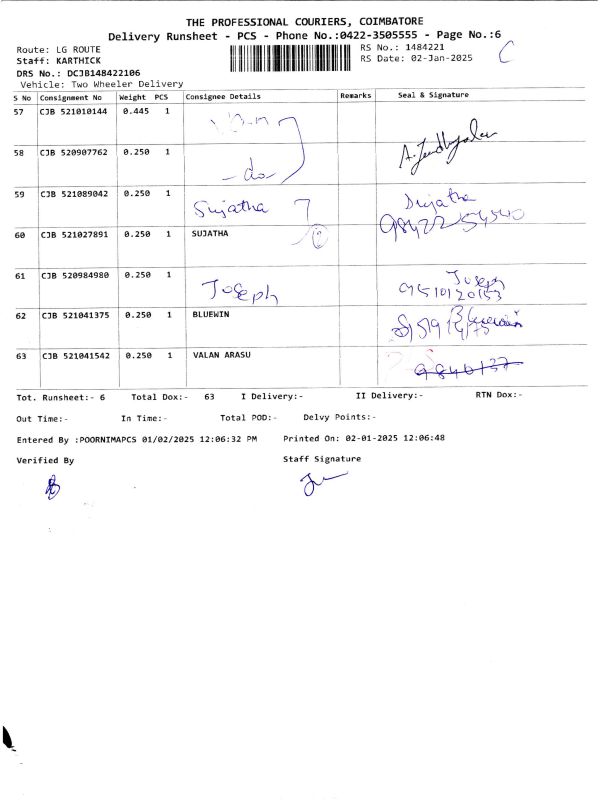 THE PROFESSIONAL COURIERS, COIMBATORE
Delivery Runsheet - PCS - Phone No.:0422-3505555 - Page No.:6
Route: LG ROUTE
RS No.: 1484221
C
Staff: KARTHICK
RS Date: 02-Jan-2025
DRS No.: DCJB148422106
Vehicle: Two Wheeler Delivery
S No Consignment No Weight PCS Consignee Details Remarks Seal & Signature
57 CJB 521010144 0.445 1
58 CJB 520907762 0.250 1 -do-
59 CJB 521089042 0.250 1 Sujatha Sujatha
60 CJB 521027891 0.250 1 SUJATHA
61 CJB 520984980 0.250 1 Joseph Joseph
62 CJB 521041375 0.250 1 BLUEWIN
63 CJB 521041542 0.250 1 VALAN ARASU
Tot. Runsheet:- 6 Total Dox:- 63 I Delivery:- II Delivery:- RTN Dox:-
Out Time:- In Time:- Total POD:- Delvy Points:-
Entered By :POORNIMAPCS 01/02/2025 12:06:32 PM Printed On: 02-01-2025 12:06:48
Verified By Staff Signature